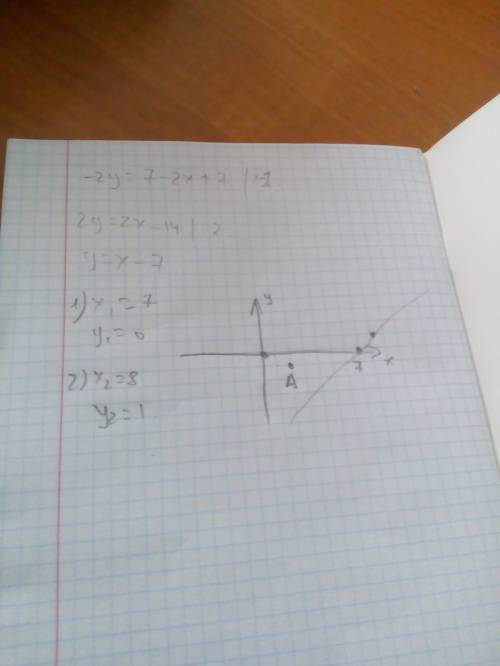 -2y = 7 - 2x + 7 | ×-1
2y = 2x - 14 | 2
y = x - 7
1) x₁ = 7
y₁ = 0
2) x₂ = 8
y₂ = 1
y
A
7
x